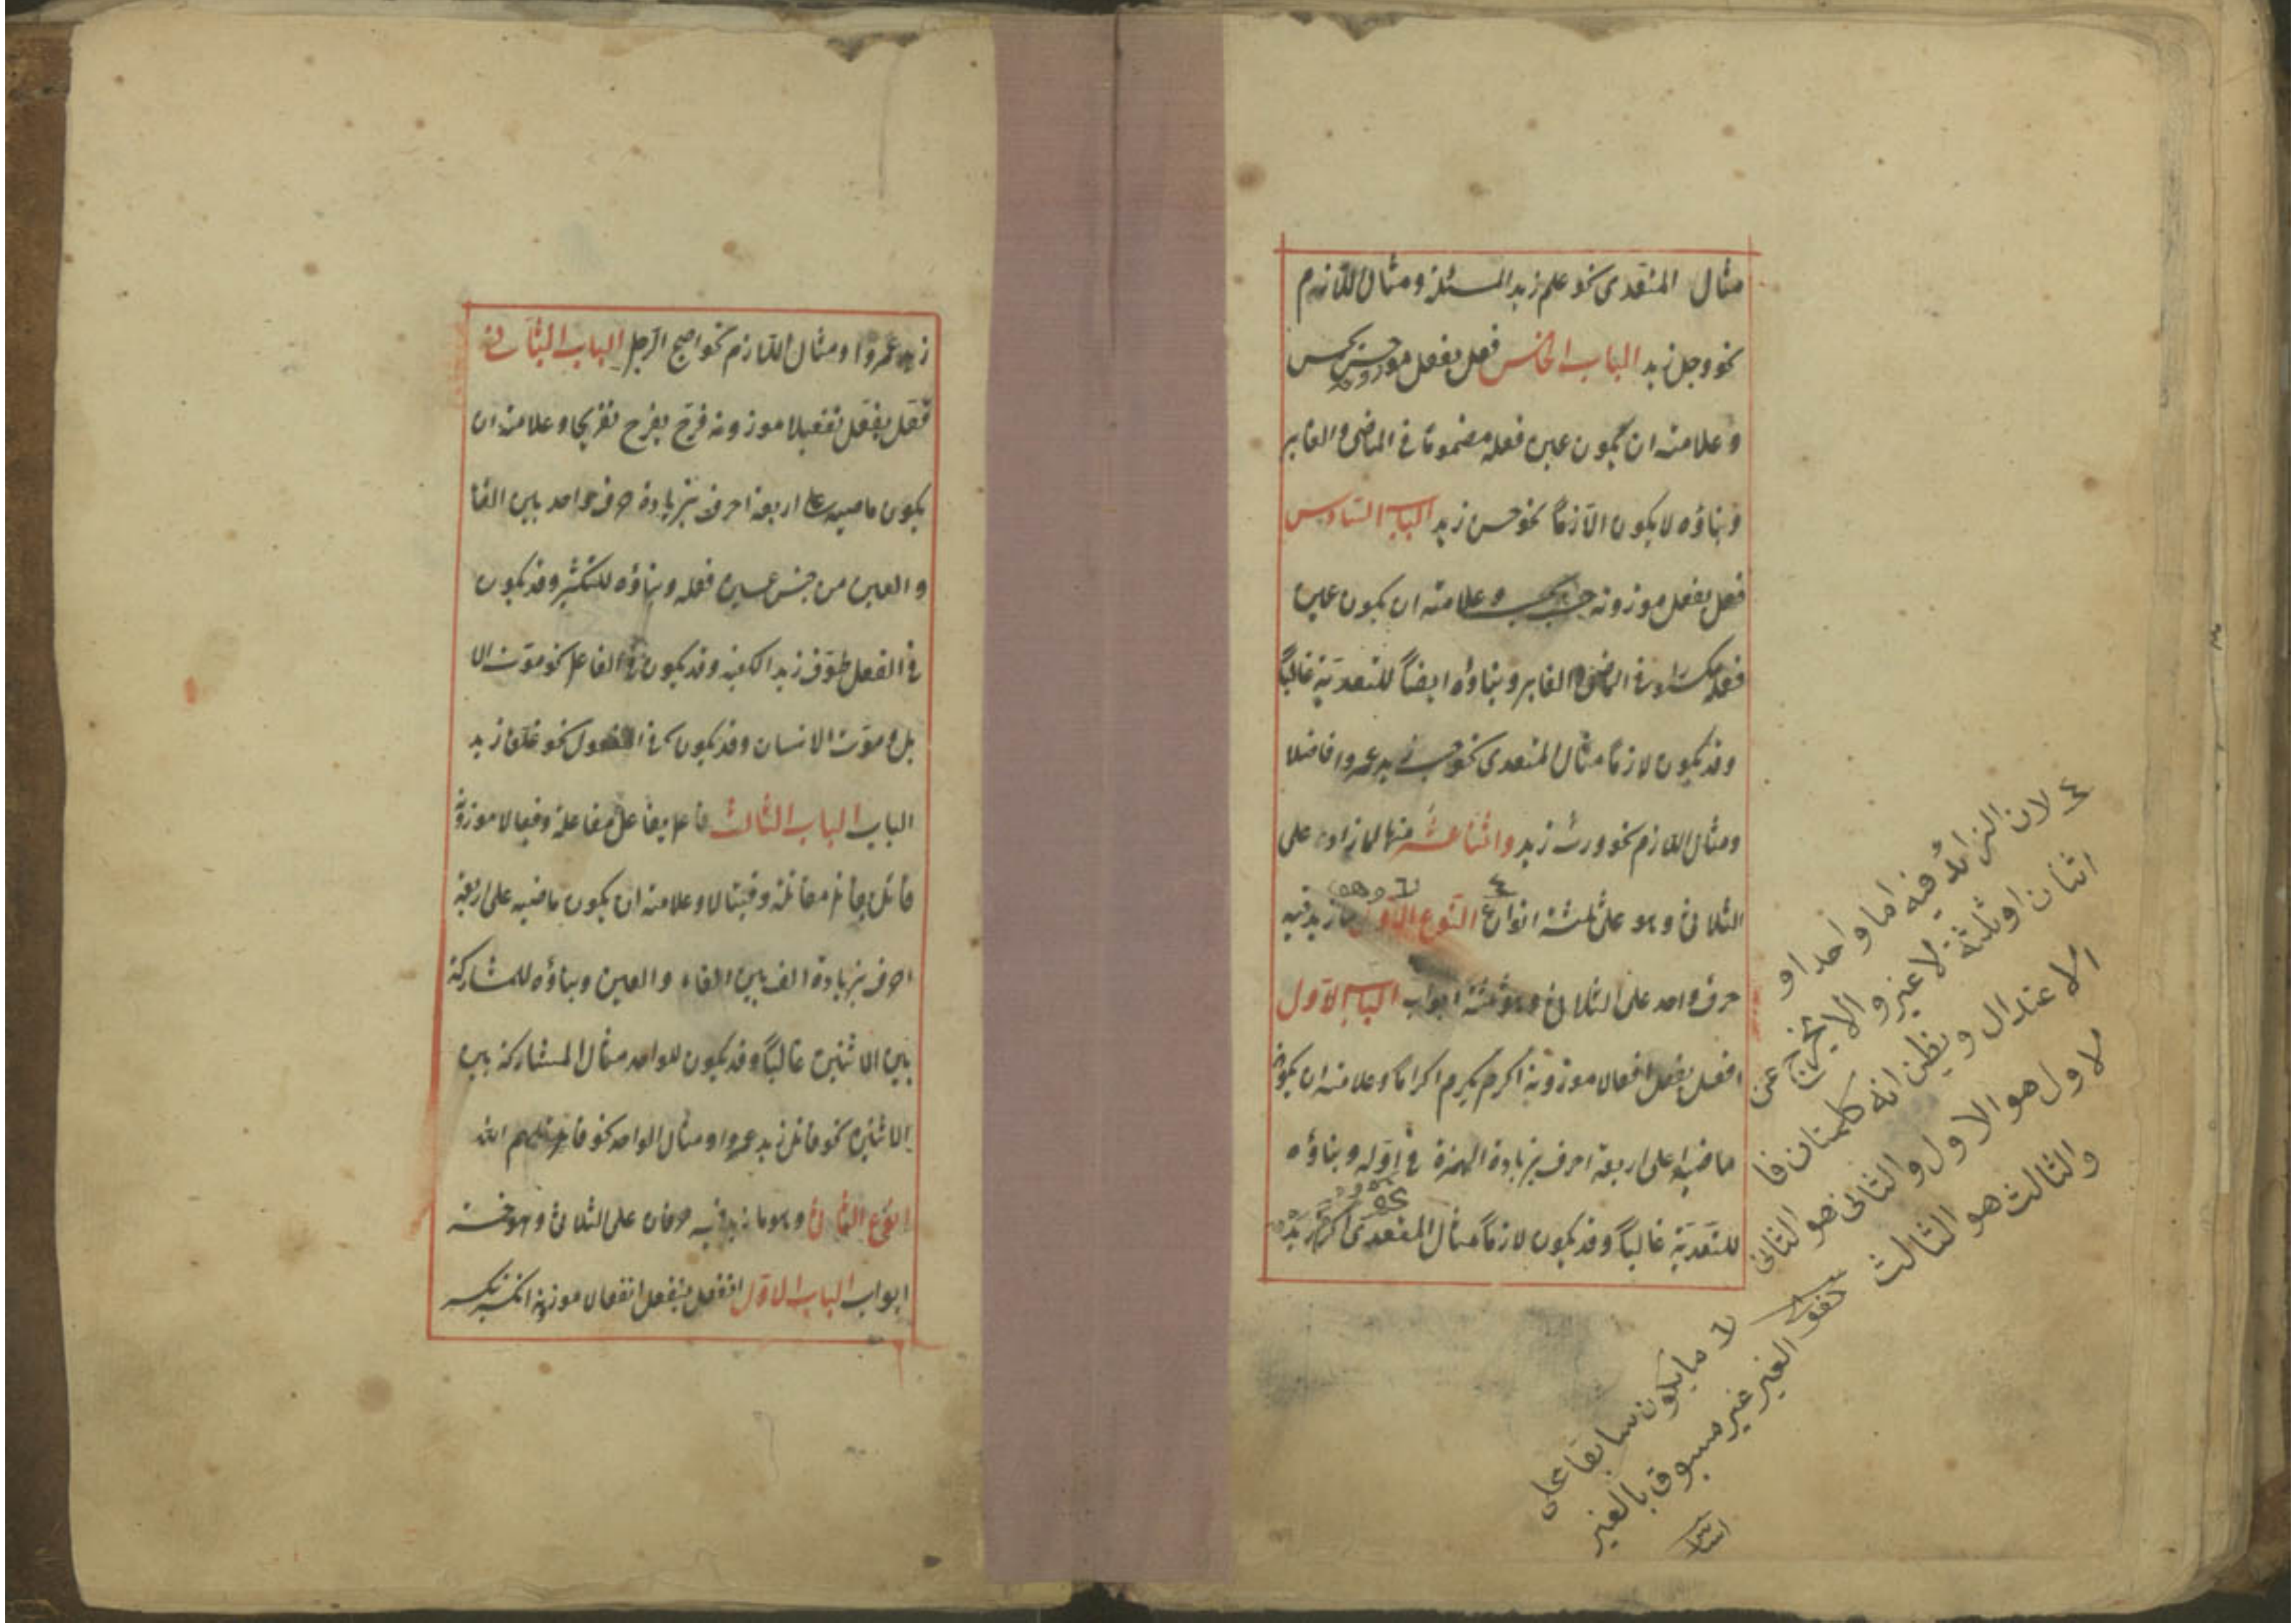 مثال المتعدى نحو علم زيد المسئلة ومثال اللازم
نحو وجل زيد الباب الخامس فعل يفعل موزونه حسن يحسن
وعلامته ان يكون عين فعله مضموما فى الماضى والغابر
وبناؤه لا يكون الا لازما نحو حسن زيد الباب السادس
فعل يفعل موزونه حسب يحسب وعلامته ان يكون عين
فعله مكسورا فى الماضى والغابر وبناؤه ايضاً للتعدية غالباً
وقد يكون لازما مثال المتعدى نحو حسب زيد عمروا فاضلا
ومثال اللازم نحو ورث زيد واثنا عشر منها لما زاد على
الثلاثى وهو على ثلثة انواع النوع الاول ما زيد فيه
حرف واحد على الثلاثى وهو ثلثة ابواب الباب الاول
افعل يفعل افعالا موزونه اكرم يكرم اكراما وعلامته ان يكون
ماضيه على اربعة احرف بزيادة الهمزة فى اوله وبناؤه
للتعدية غالباً وقد يكون لازماً مثال المتعدى نحو اكرم زيد
٤ لان الزائد فيه اما واحد او
اثنان او ثلثة لا غير والا يخرج عن
الاعتدال ويظن انه كلمتان فا
لاول هو الاول والثانى هو الثانى
والثالث هو الثالث
٦ ما يكون سابقا على
الغير غير مسبوق بالغير
زيد عمروا ومثال اللازم نحو اصبح الرجل الباب الثانى
فعّل يفعّل تفعيلا موزونه فرّح يفرّح تفريحا وعلامته ان
يكون ماضيه على اربعة احرف بزيادة حرف واحد بين الفا
والعين من جنس عين فعله وبناؤه للتكثير وقد يكون
فى الفعل طوّف زيد الكعبة وقد يكون فى الفاعل نحو موّت الا
بل وموّت الانسان وقد يكون فى المفعول نحو غلّق زيد
الباب الباب الثالث فاعل يفاعل مفاعلة وفعالا موزونه
قاتل يقاتل مقاتلة وقيتالا وعلامته ان يكون ماضيه على اربعة
احرف بزيادة الف بين الفاء والعين وبناؤه للمشاركة
بين الاثنين غالباً وقد يكون للواحد مثال المشاركة بين
الاثنين نحو قاتل زيد عمروا ومثال الواحد نحو قاتلهم الله
النوع الثانى وهو ما زيد فيه حرفان على الثلاثى وهو خمسة
ابواب الباب الاول انفعل ينفعل انفعالا موزونه انكسر ينكسر